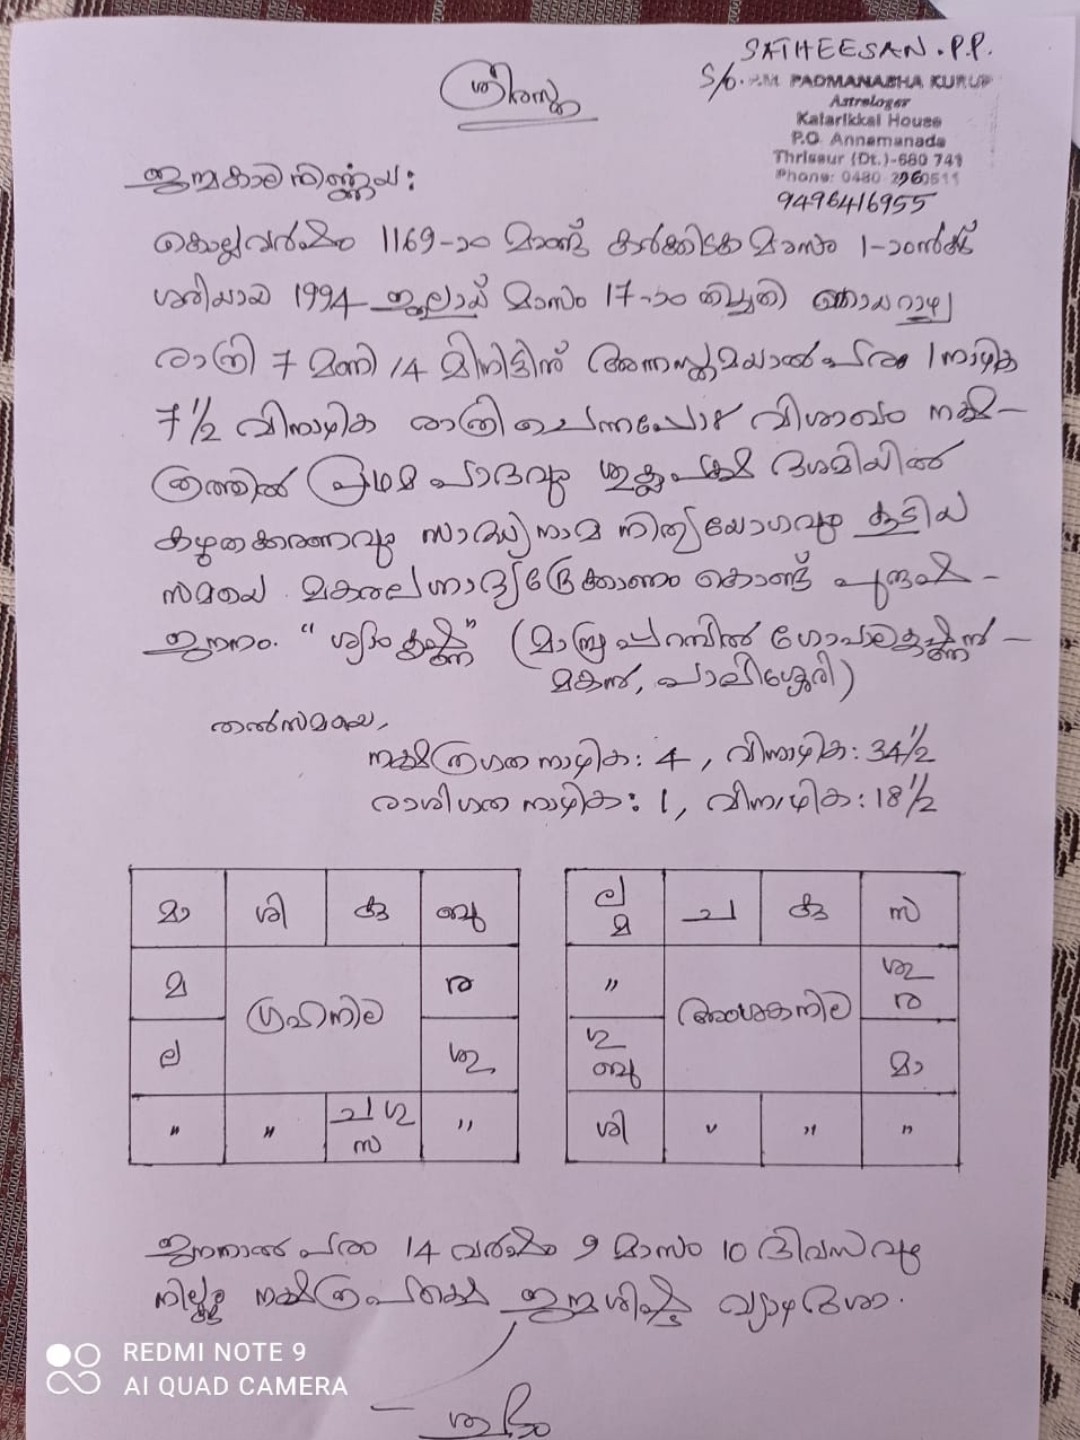 ശ്രീരസ്തു
SATHEESAN.P.P.
S/o. P.M. PADMANABHA KURUP
Astrologer
Kalarikkal House
P.O. Annamanada
Thrissur (Dt.)-680 741
Phone: 0480 2960511
9496416955
ജന്മകാലനിർണ്ണയ:
കൊല്ലവർഷം 1169-ാം മാണ്ട് കർക്കിടക മാസം 1-ാംൻക്ക്
ശരിയായ 1994 ജൂലായ് മാസം 17-ാം തിയ്യതി ഞായറാഴ്ച
രാത്രി 7 മണി 14 മിനിട്ടിന് അസ്തമയാൽപരം 1 നാഴിക
7½ വിനാഴിക രാത്രി ചെന്നപ്പോൾ വിശാഖം നക്ഷ-
ത്രത്തിൽ പ്രഥമ പാദവും ശുക്ലപക്ഷ ദശമിയിൽ
കഴുതക്കരണവും സാദ്ധ്യനാമ നിത്യയോഗവും കൂടിയ
സമയെ മകരലഗ്നാദ്യദ്രേക്കാണം കൊണ്ട് പുരുഷ-
ജനനം. "ശ്യാംകൃഷ്ണ" (മാമ്പ്രപറമ്പിൽ ഗോപാലകൃഷ്ണൻ-
മകൻ, പാലിശ്ശേരി)
തൽസമയെ,
നക്ഷത്രഗത നാഴിക: 4, വിനാഴിക: 34½
രാശിഗത നാഴിക: 1, വിനാഴിക: 18½
മാ ശി കു ബു
മ ഗ്രഹനില ര
ല ശു
" " ച ഗു സ "
ല മ ച കു സ
" അംശകനില ശു ര
ഗു ബു മാ
ശി " " "
ജനനാൽ പരം 14 വർഷം 9 മാസം 10 ദിവസവും
നില്പു നക്ഷത്രപ്രത്യക്ഷ ജന്മശിഷ്ട വ്യാഴദശാ.
REDMI NOTE 9
AI QUAD CAMERA
ശുഭം